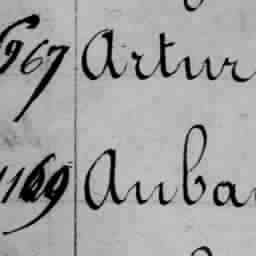 967 Artur
1169 Auba